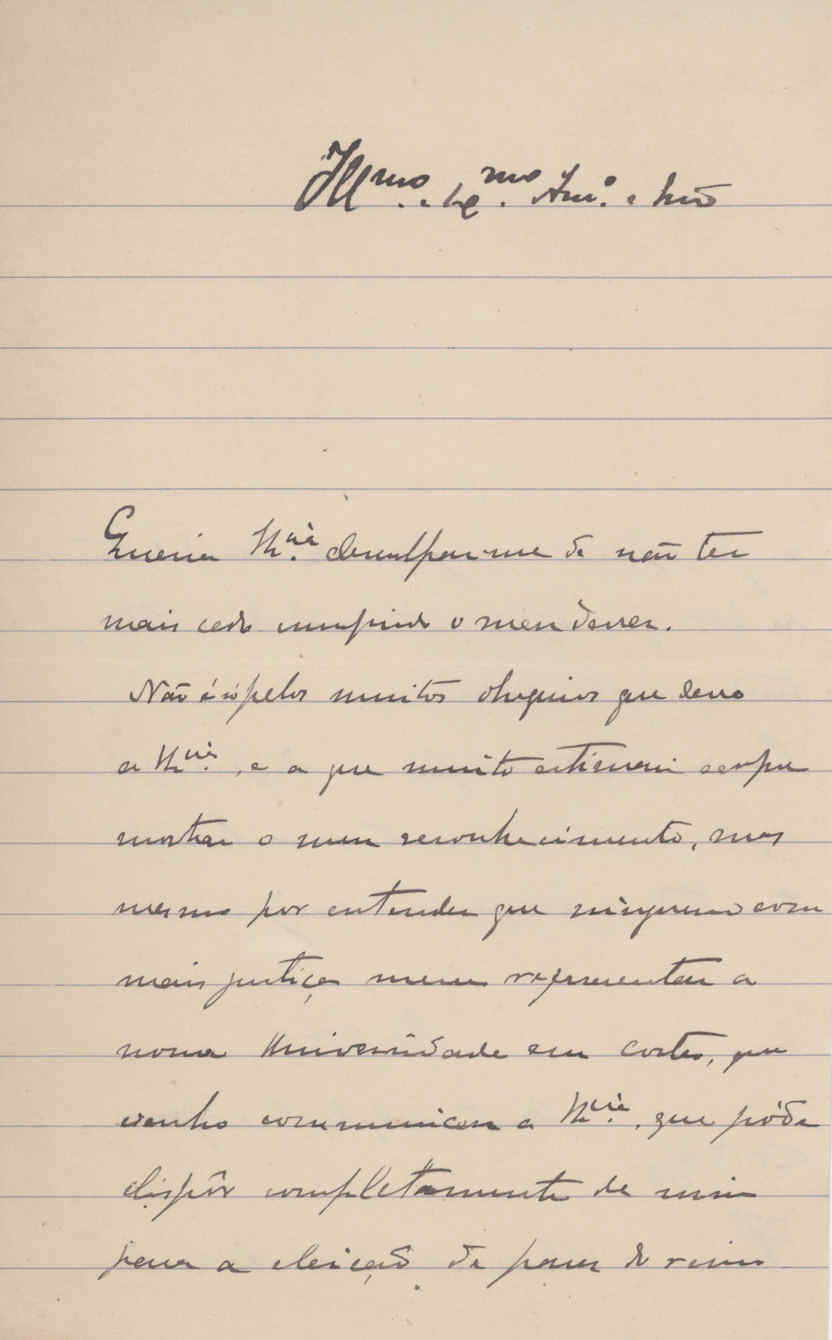 Ill.mo e Ex.mo Am.o e
Queria V.cia desculpar-me de não ter
mais cedo cumprido o meu dever.
Não é só pelos muitos obsequios que devo
a V.cia, e a que muito estimarei sempre
mostrar o meu reconhecimento, mas
mesmo por entender que ninguem com
mais justiça merece representar a
nossa Universidade em cortes, que
venho communicar a V.cia, que póde
dispôr completamente de mim
para a eleição de pares do reino